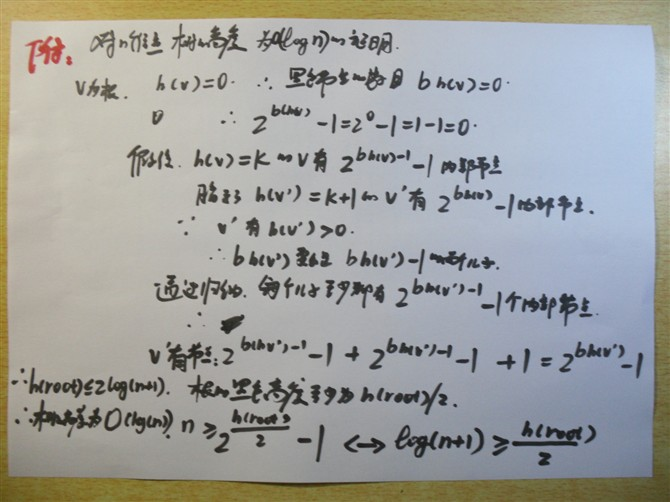 下附: 对n个结点 树的高度为O(log n)的证明.
v为根. h(v)=0. ∴ 黑色节点的数目 bh(v)=0.
∴ 2^{bh(v)}-1=2^0-1=1-1=0.
假设. h(v)=k的v有 2^{bh(v)-1}-1内部节点
h(v')=k+1的v'有 2^{bh(v)}-1内部节点.
∵ v'有h(v')>0.
∴ bh(v') bh(v')-1 儿子.
通过归纳. 每个儿子至少都有 2^{bh(v')-1}-1个内部节点.
∴
v'有节点: 2^{bh(v')-1}-1 + 2^{bh(v')-1}-1 +1 = 2^{bh(v')}-1
∴h(root)≤2log(n+1). 根的黑色高度至少为h(root)/2.
∴树的高为O(log(n)). n ≥ 2^{h(root)/2} -1 ↔ log(n+1) ≥ h(root)/2